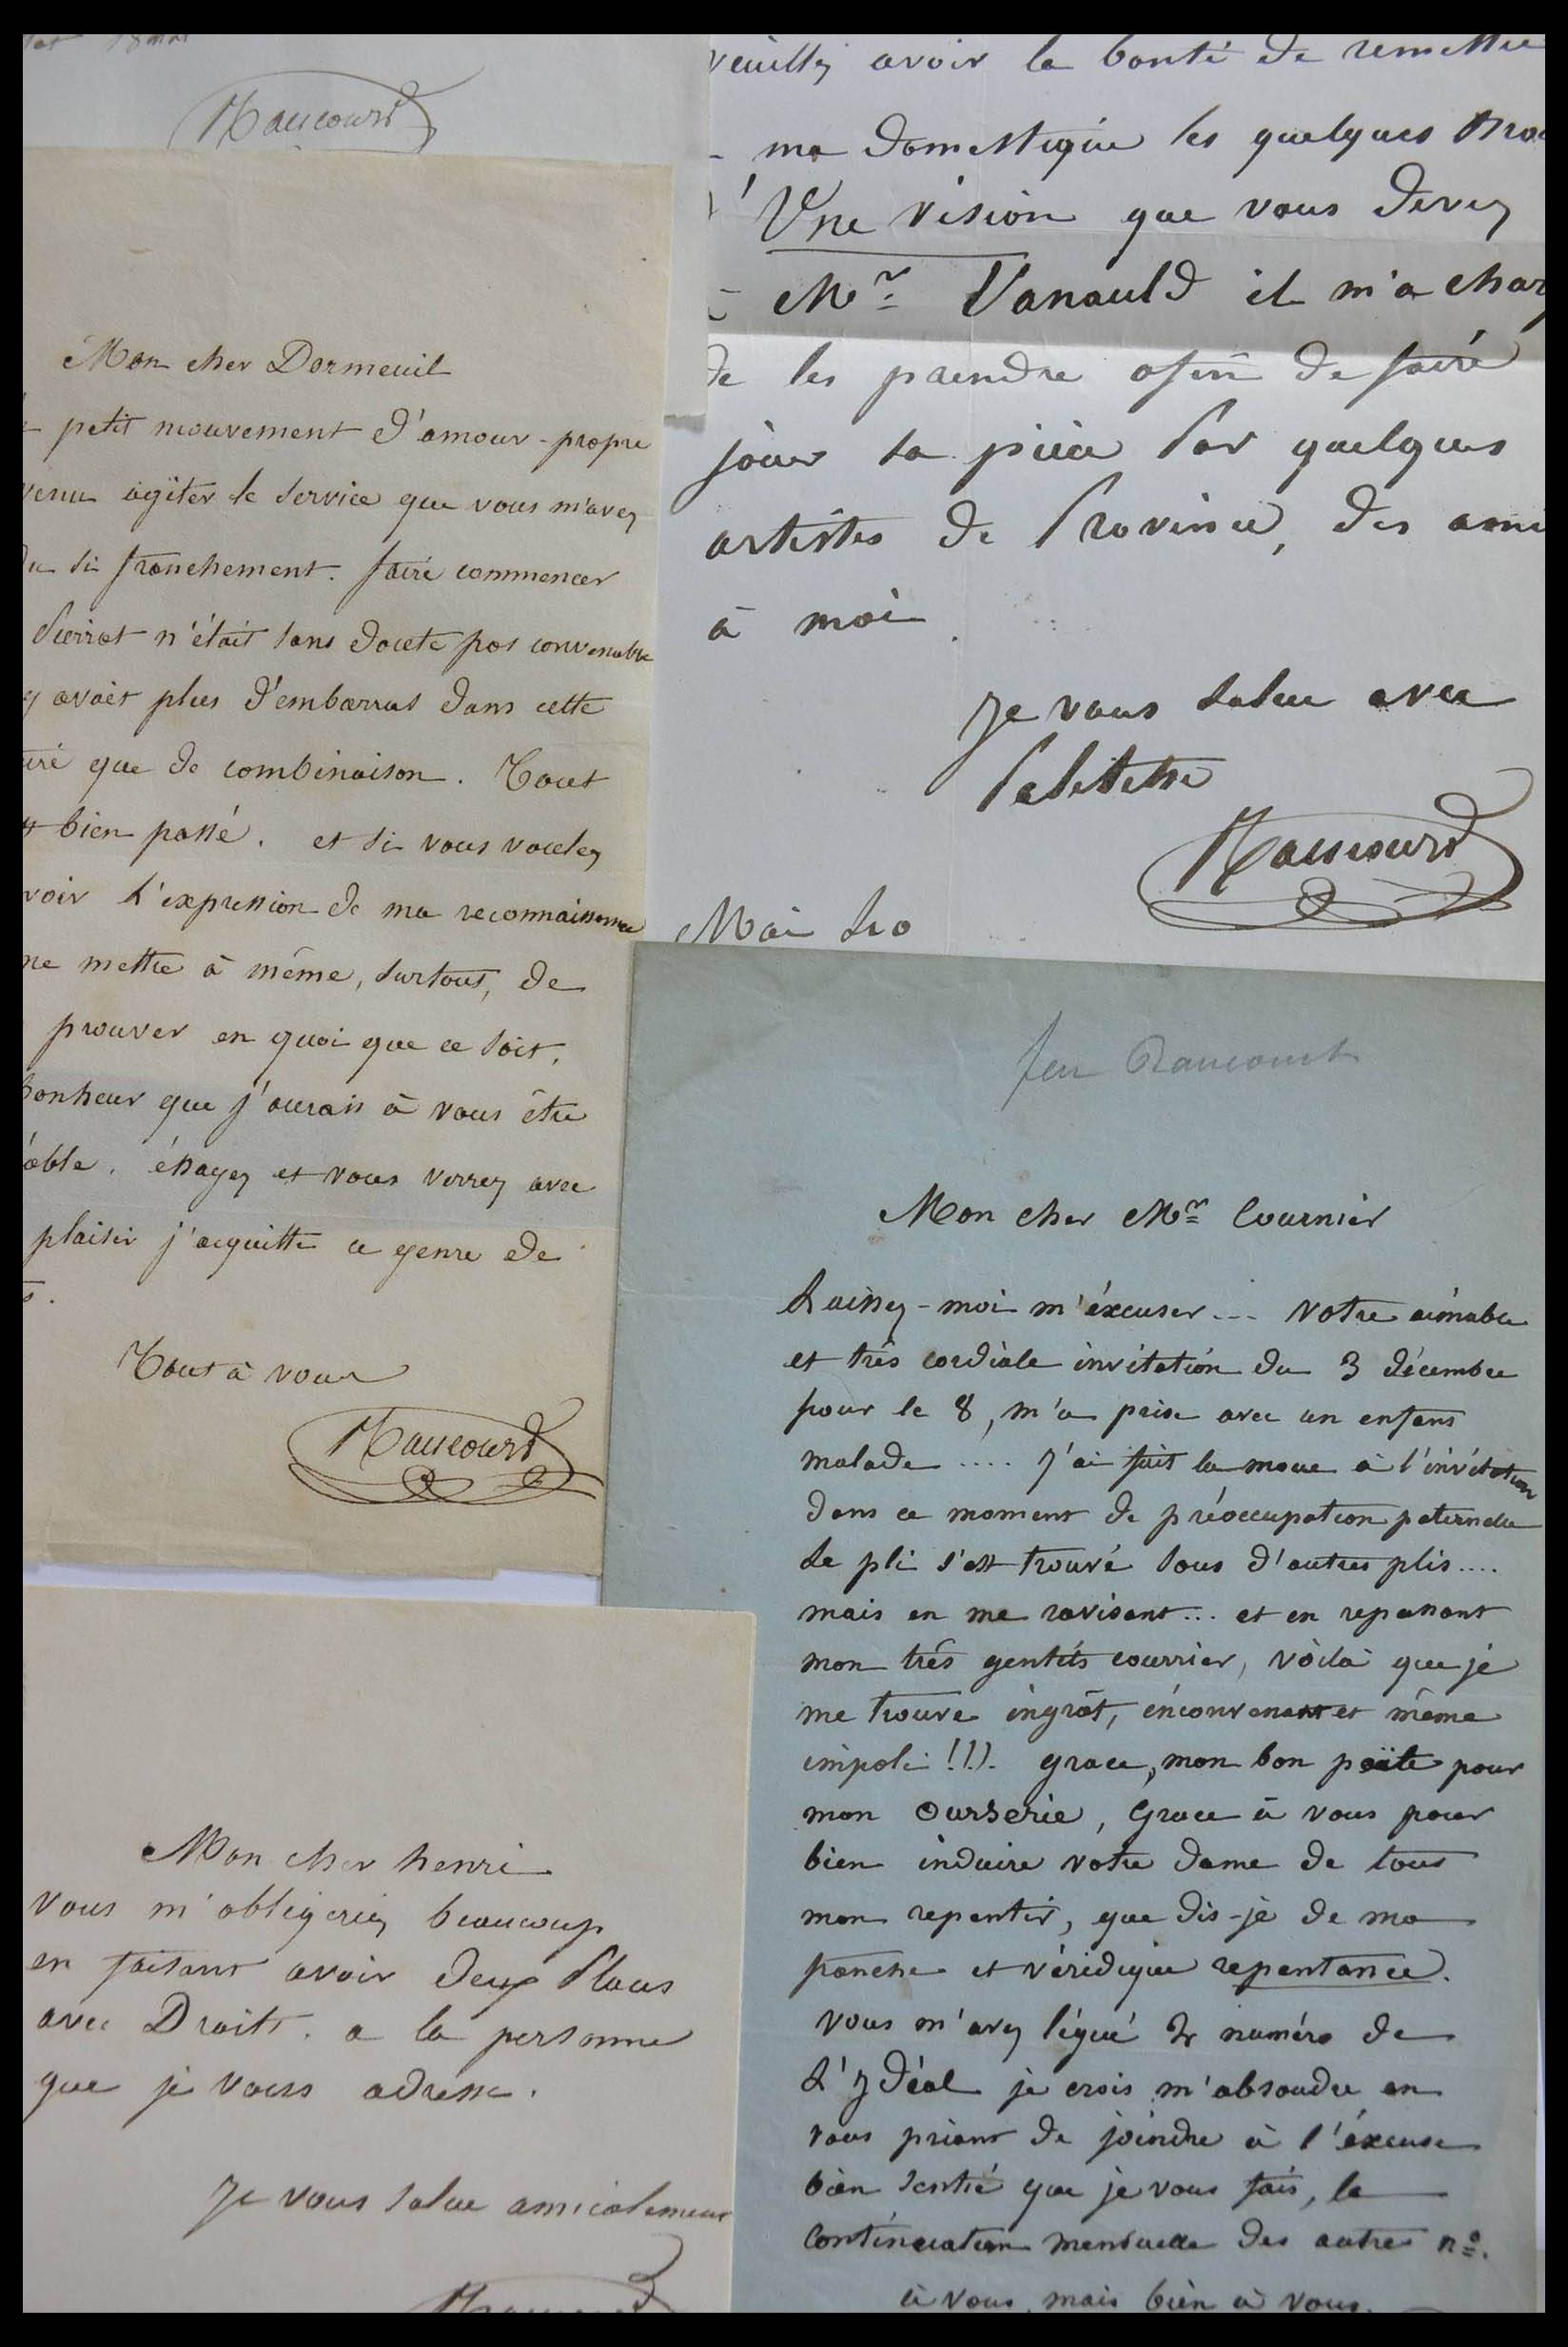 18 mai
Raucourt
Mon cher Dormeuil
petit mouvement d'amour-propre
venu agiter le service que vous m'avez
du si franchement. faire commencer
Pierrot n'était sans doute pas convenable
y avait plus d'embarras dans cette
que de combinaison. Tout
bien passé. et si vous voulez
voir l'expression de ma reconnaissance
me mettre à même, surtout, de
prouver en quoi que ce soit,
bonheur que j'aurais à vous être
able. éssayez et vous verrez avec
plaisir j'acquitte ce genre de
Tout à vous
Raucourt
veuillez avoir la bonté de remettre
ma domestique les quelques
Une vision que vous devez
Mr Vanauld il m'a char
de les prendre afin de faire
jouer sa pièce par quelques
artistes de Province, des ami
à moi
Je vous salue avec
Politesse
Raucourt
Mai
feu Raucourt
Mon cher Mr Cournier
Laissez-moi m'éxcuser... votre aimable
et très cordiale invitation du 3 décembre
pour le 8, m'a prise avec un enfant
malade .... j'ai fait la moue à l'invitation
dans ce moment de préoccupation paternelle
Le pli s'est trouvé sous d'autres plis....
mais en me ravisant... et en repassant
mon très gentils courrier, voilà que je
me trouve ingrât, inconvenant et même
impoli !!!. grace, mon bon poëte pour
mon ourserie, Grace à vous pour
bien induire votre dame de tout
mon repentir, que dis-je de ma
franche et véridique repentance.
vous m'avez légué 2 numéro de
L'ydéal je crois m'absoudre en
vous priant de joindre à l'éxcuse
bien sentié que je vous fais, la
Continuation mensuelle des autres nº.
à vous, mais bien à vous.
Mon cher henri
vous m'obligeriez beaucoup
en faisant avoir deux Places
avec Droits. a la personne
que je vous adresse.
Je vous salue amicalement